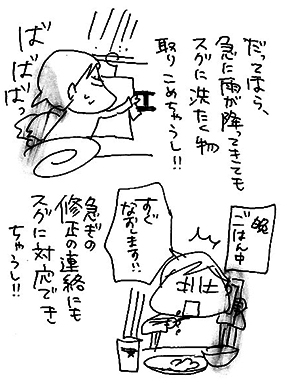 だってほら、
急に雨が降ってきても
スグに洗たく物
取りこめちゃうし!!
ばばばっ
晩ごはん中
すぐ
なおします!!
急ぎの
修正の連絡にも
スグに対応でき
ちゃうし!!